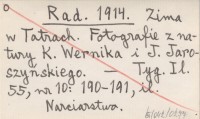 o Rad. 1914. Zima
w Tatrach. Fotografie z na-
tury K. Wernika i J. Jaro-
szyńskiego. — Tyg. Il.
55, nr 10: 190-191, il.
Narciarstwo.